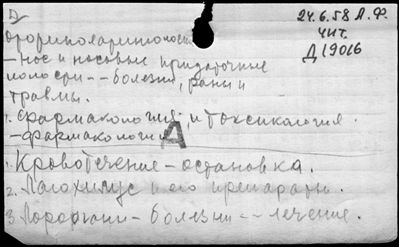 24.6.58 А.Ф.
чит.
Д19016
Оториноларингология
- нос и носовые придаточные
полости -- болезни, раны и
травмы.
1. Фармакология и токсикология.
- фармакология
А
1. Кровотечение - остановка.
2. Лагохилус и его препараты.
3. Лорорганы - болезни -- лечение.